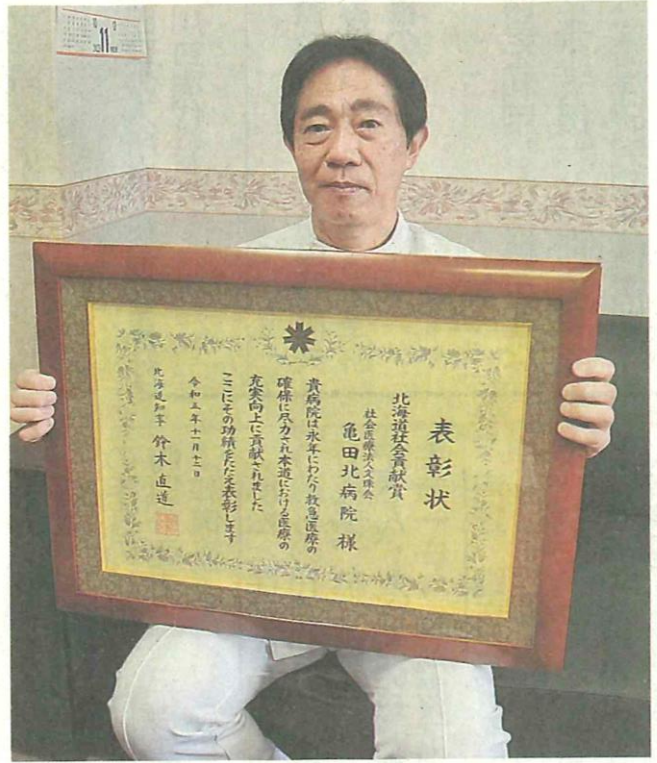 11
表彰状
北海道社会貢献賞
社会医療法人
亀田北病院 様
貴病院は永年にわたり救急医療の
確保に尽力され本道における医療の
充実向上に貢献されました
ここにその功績をたたえ表彰します
令和三年十一月十二日
北海道知事 鈴木 直道